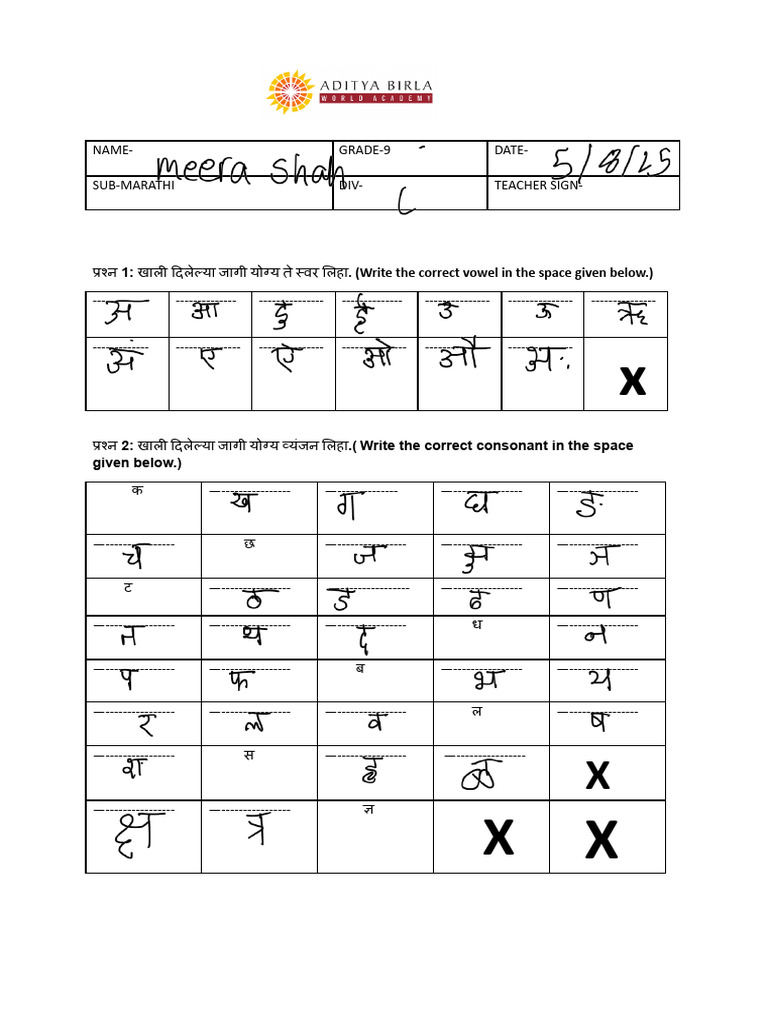 ADITYA BIRLA
WORLD ACADEMY
NAME- meera shah GRADE-9 - DATE- 5/8/25
SUB-MARATHI DIV- C TEACHER SIGN-
प्रश्न 1: खाली दिलेल्या जागी योग्य ते स्वर लिहा. (Write the correct vowel in the space given below.)
अ आ इ ई उ ऊ ऋ
अं ए ऐ ओ औ अः X
प्रश्न 2: खाली दिलेल्या जागी योग्य व्यंजन लिहा.( Write the correct consonant in the space
given below.)
क ख ग घ ङ
च छ ज झ ञ
ट ठ ड ढ ण
त थ द ध न
प फ ब भ य
र ल व ल ष
श स ह ळ X
क्ष त्र ज्ञ X X